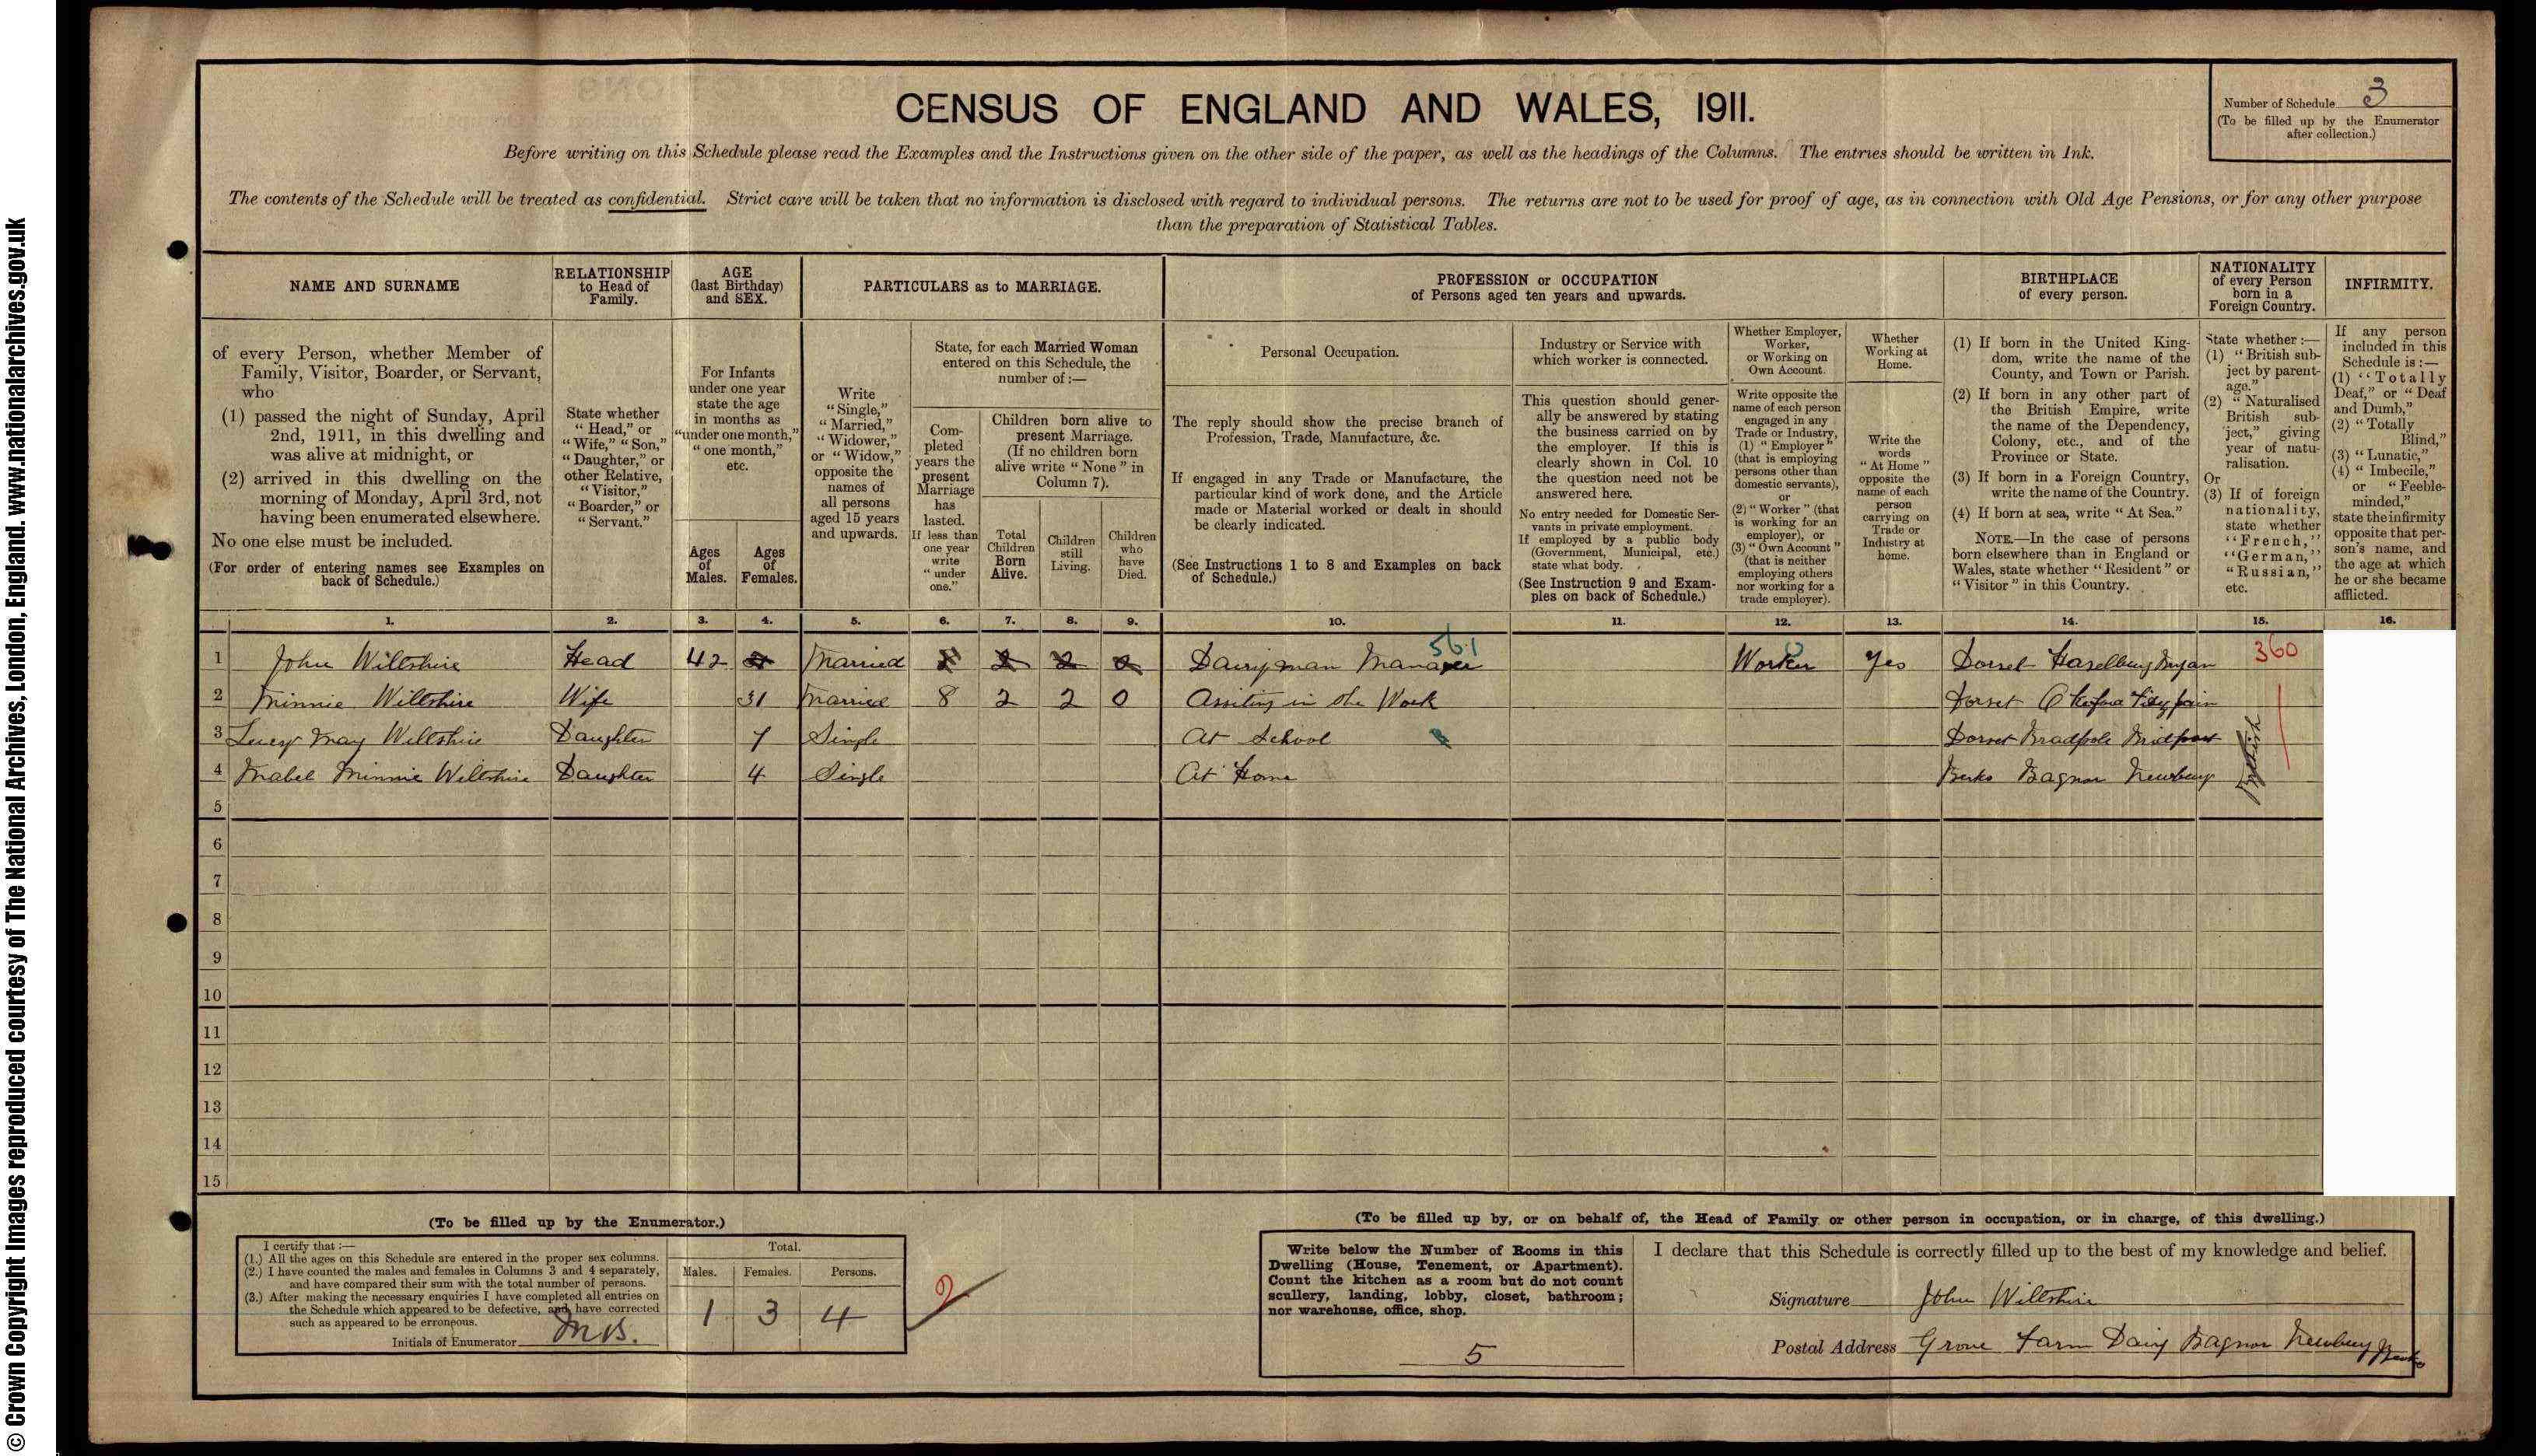 © Crown Copyright Images reproduced courtesy of The National Archives, London, England. www.nationalarchives.gov.uk
CENSUS OF ENGLAND AND WALES, 1911.
Number of Schedule 3
(To be filled up by the Enumerator after collection.)
Before writing on this Schedule please read the Examples and the Instructions given on the other side of the paper, as well as the headings of the Columns. The entries should be written in Ink.
The contents of the Schedule will be treated as confidential. Strict care will be taken that no information is disclosed with regard to individual persons. The returns are not to be used for proof of age, as in connection with Old Age Pensions, or for any other purpose
than the preparation of Statistical Tables.
NAME AND SURNAME
of every Person, whether Member of
Family, Visitor, Boarder, or Servant,
who
(1) passed the night of Sunday, April
2nd, 1911, in this dwelling and
was alive at midnight, or
(2) arrived in this dwelling on the
morning of Monday, April 3rd, not
having been enumerated elsewhere.
No one else must be included.
(For order of entering names see Examples on
back of Schedule.)
RELATIONSHIP
to Head of
Family.
State whether
"Head," or
"Wife," "Son,"
"Daughter," or
other Relative,
"Visitor,"
"Boarder," or
"Servant."
AGE
(last Birthday)
and SEX.
For Infants
under one year
state the age
in months as
"under one month,"
"one month,"
etc.
Ages
of
Males.
Ages
of
Females.
PARTICULARS as to MARRIAGE.
Write
"Single,"
"Married,"
"Widower,"
or "Widow,"
opposite the
names of
all persons
aged 15 years
and upwards.
State, for each Married Woman
entered on this Schedule, the
number of:—
Com-
pleted
years the
present
Marriage
has
lasted.
If less than
one year
write
"under
one."
Children born alive to
present Marriage.
(If no children born
alive write "None" in
Column 7).
Total
Children
Born
Alive.
Children
still
Living.
Children
who
have
Died.
PROFESSION or OCCUPATION
of Persons aged ten years and upwards.
Personal Occupation.
The reply should show the precise branch of
Profession, Trade, Manufacture, &c.
If engaged in any Trade or Manufacture, the
particular kind of work done, and the Article
made or Material worked or dealt in should
be clearly indicated.
(See Instructions 1 to 8 and Examples on back
of Schedule.)
Industry or Service with
which worker is connected.
This question should gener-
ally be answered by stating
the business carried on by
the employer. If this is
clearly shown in Col. 10
the question need not be
answered here.
No entry needed for Domestic Ser-
vants in private employment.
If employed by a public body
(Government, Municipal, etc.)
state what body.
(See Instruction 9 and Exam-
ples on back of Schedule.)
Whether Employer,
Worker,
or Working on
Own Account.
Write opposite the
name of each person
engaged in any
Trade or Industry,
(1) "Employer"
(that is employing
persons other than
domestic servants),
or
(2) "Worker" (that
is working for an
employer), or
(3) "Own Account"
(that is neither
employing others
nor working for a
trade employer).
Whether
Working at
Home.
Write the
words
"At Home"
opposite the
name of each
person
carrying on
Trade or
Industry at
home.
BIRTHPLACE
of every person.
(1) If born in the United King-
dom, write the name of the
County, and Town or Parish.
(2) If born in any other part of
the British Empire, write
the name of the Dependency,
Colony, etc., and of the
Province or State.
(3) If born in a Foreign Country,
write the name of the Country.
(4) If born at sea, write "At Sea."
NOTE.—In the case of persons
born elsewhere than in England or
Wales, state whether "Resident" or
"Visitor" in this Country.
NATIONALITY
of every Person
born in a
Foreign Country.
State whether:—
(1) "British sub-
ject by parent-
age."
(2) "Naturalised
British sub-
ject," giving
year of natu-
ralisation.
Or
(3) If of foreign
nationality,
state whether
"French,"
"German,"
"Russian,"
etc.
INFIRMITY.
If any person
included in this
Schedule is:—
(1) "Totally
Deaf," or "Deaf
and Dumb,"
(2) "Totally
Blind,"
(3) "Lunatic,"
(4) "Imbecile,"
or "Feeble-
minded,"
state the infirmity
opposite that per-
son's name, and
the age at which
he or she became
afflicted.
1. 2. 3. 4. 5. 6. 7. 8. 9. 10. 11. 12. 13. 14. 15. 16.
1 John Wiltshire Head 42 Married 2 2 0 Dairyman Manager 561 Worker Yes Dorset Haselbury Bryan 360
2 Minnie Wiltshire Wife 31 Married 8 2 2 0 Assiting in the Work Dorset Okeford Fitzpain
3 Lucy May Wiltshire Daughter 7 Single At School Dorset Bradpole Bridport
4 Mabel Minnie Wiltshire Daughter 4 Single At Home Berks Bagnor Newbury
British
5
6
7
8
9
10
11
12
13
14
15
(To be filled up by the Enumerator.)
I certify that:—
(1.) All the ages on this Schedule are entered in the proper sex columns.
(2.) I have counted the males and females in Columns 3 and 4 separately,
and have compared their sum with the total number of persons.
(3.) After making the necessary enquiries I have completed all entries on
the Schedule which appeared to be defective, and have corrected
such as appeared to be erroneous.
Initials of Enumerator
Total.
Males. Females. Persons.
1 3 4
2
(To be filled up by, or on behalf of, the Head of Family or other person in occupation, or in charge, of this dwelling.)
Write below the Number of Rooms in this
Dwelling (House, Tenement, or Apartment).
Count the kitchen as a room but do not count
scullery, landing, lobby, closet, bathroom;
nor warehouse, office, shop.
5
I declare that this Schedule is correctly filled up to the best of my knowledge and belief.
Signature John Wiltshire
Postal Address Grove Farm Dairy Bagnor Newbury Berks